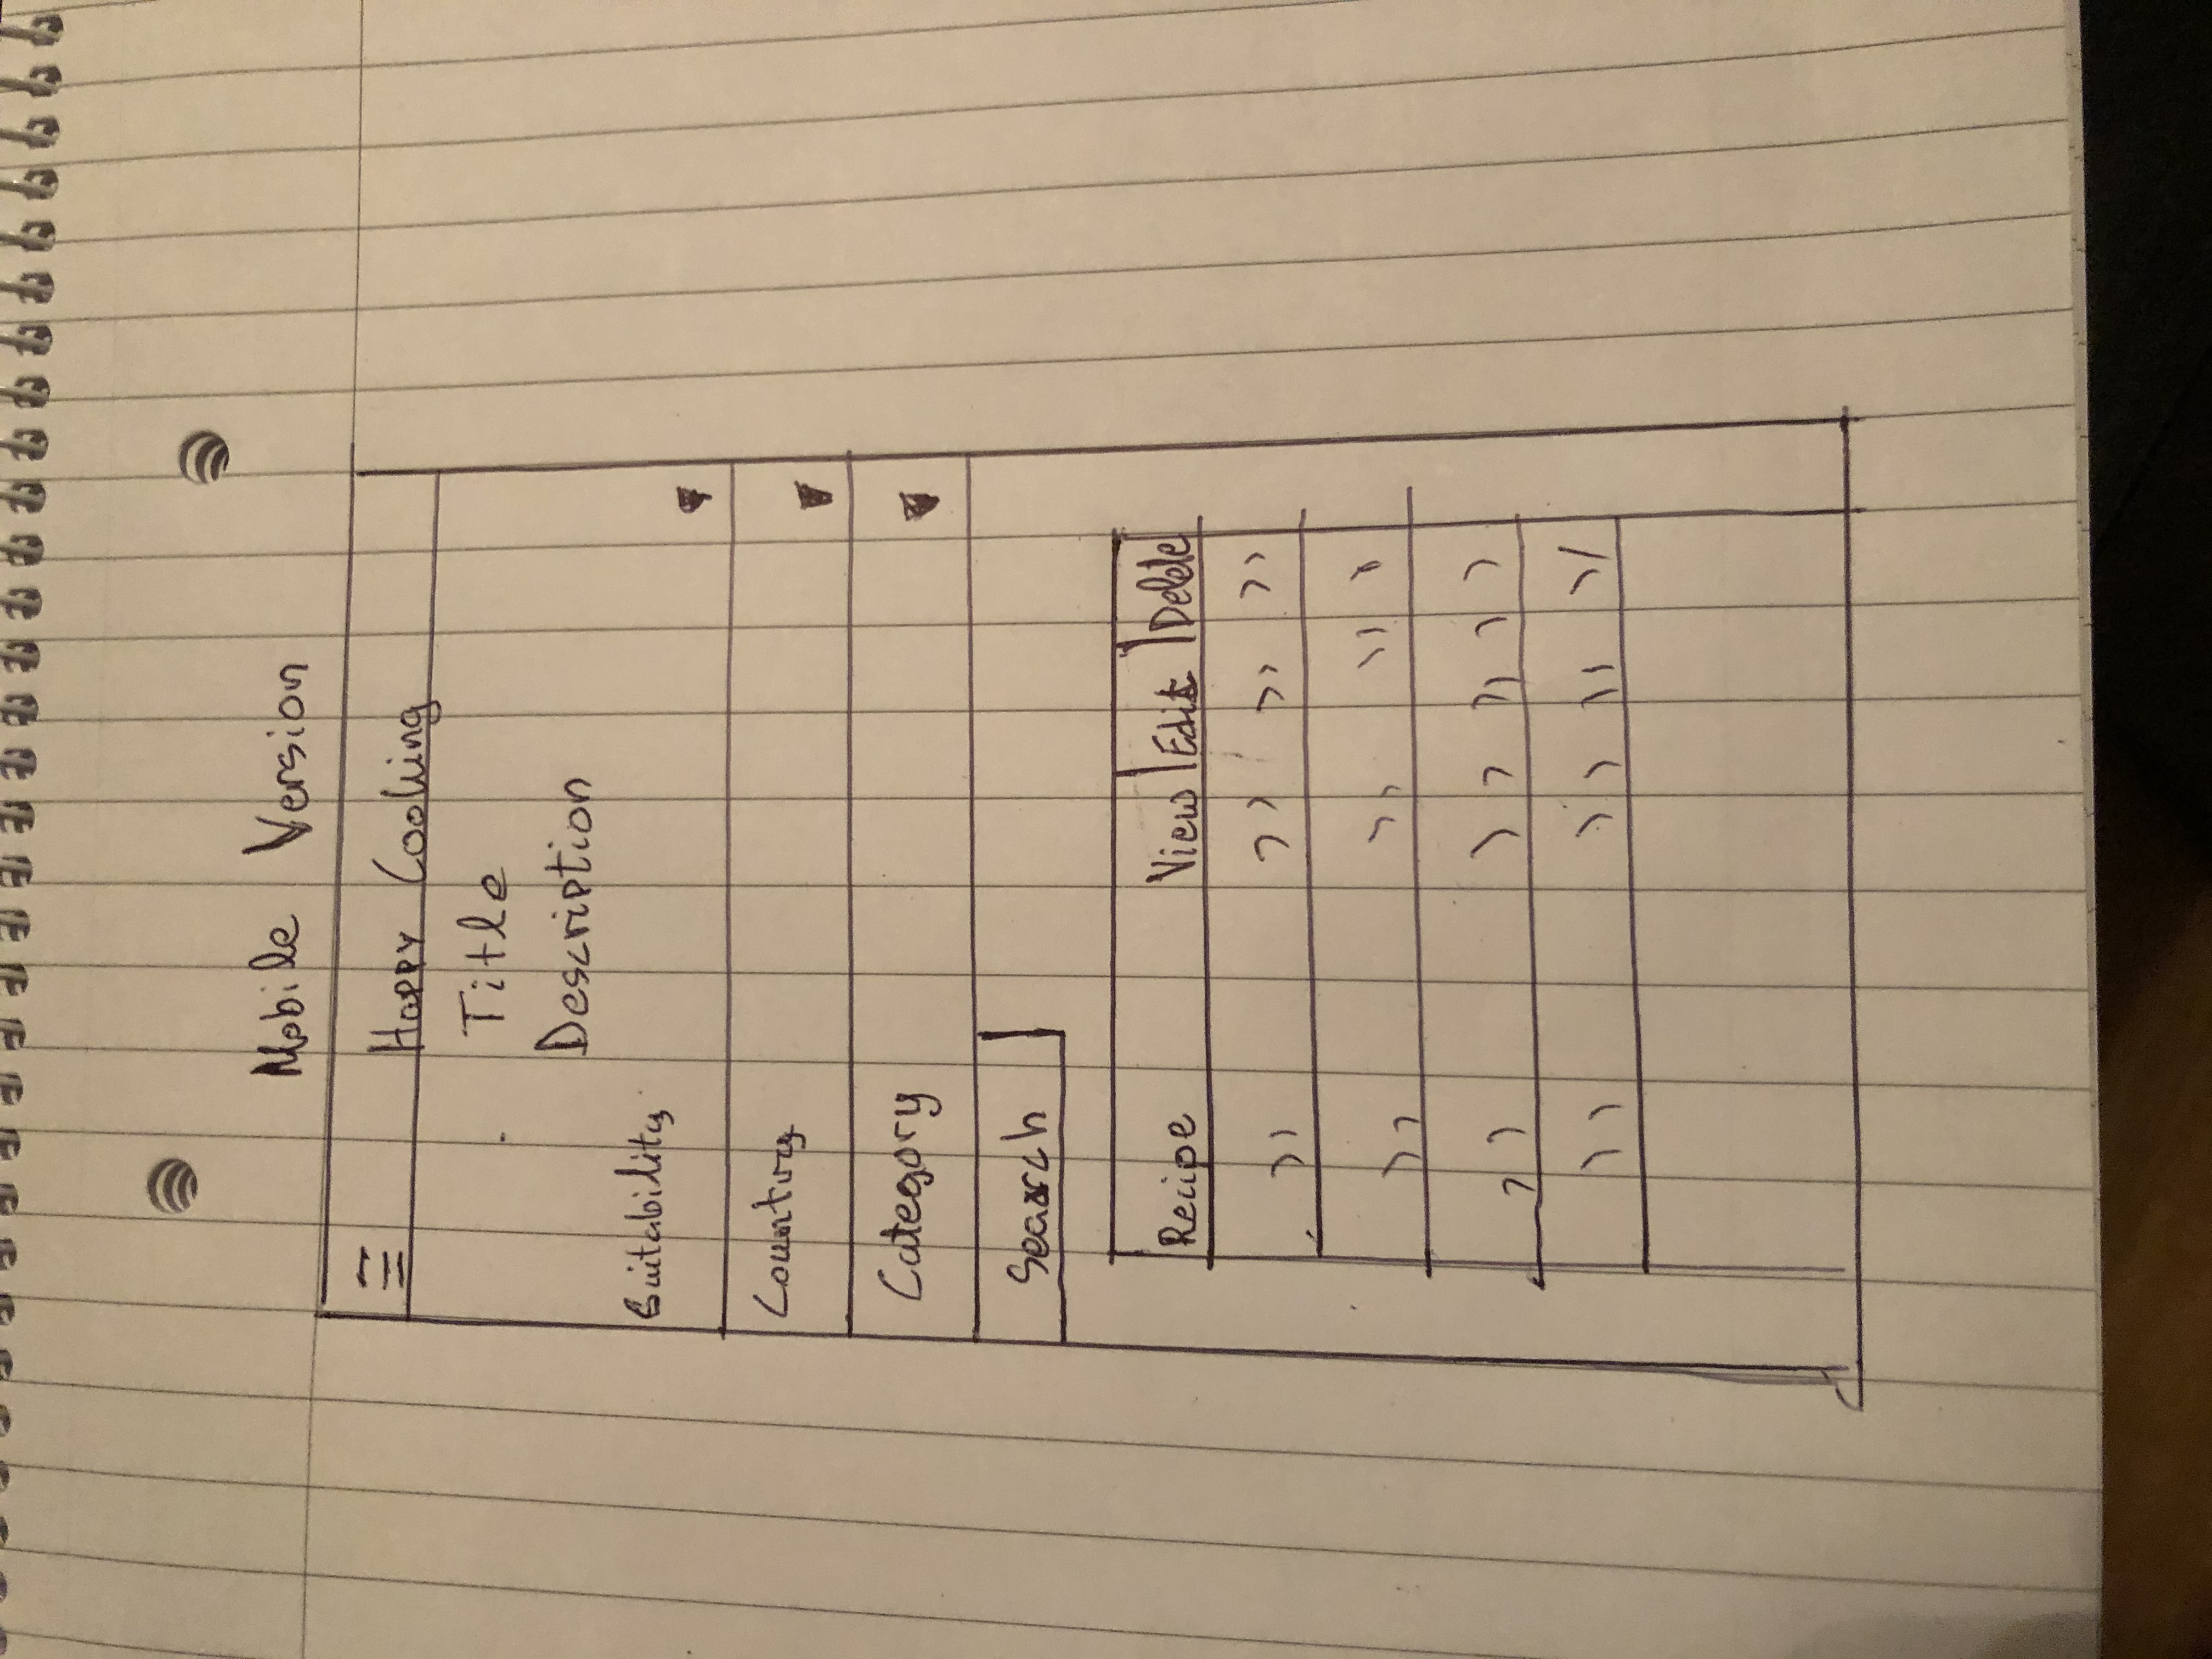 Mobile Version
Happy Cooking
Title
Description
Suitability
Country
Category
Search
Recipe View Edit Delete